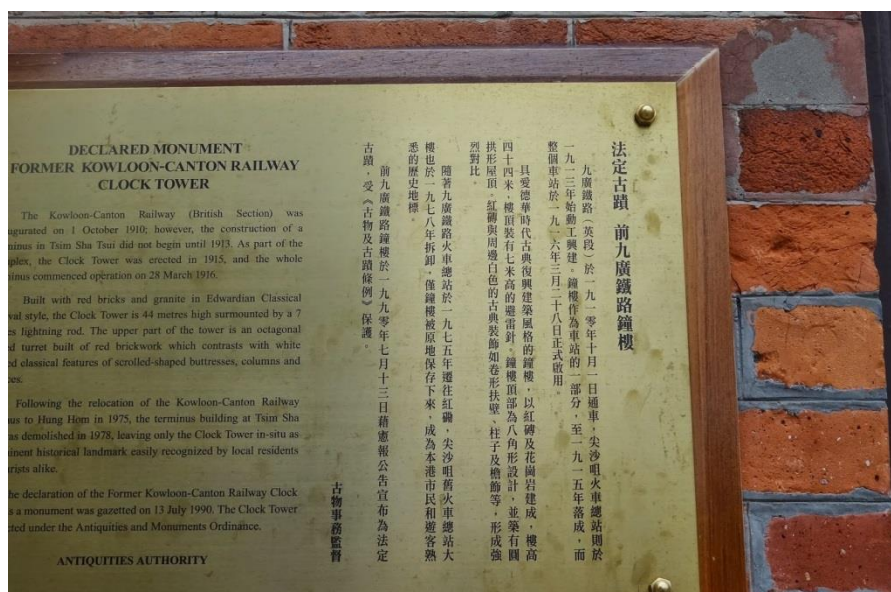 DECLARED MONUMENT
FORMER KOWLOON-CANTON RAILWAY
CLOCK TOWER
The Kowloon-Canton Railway (British Section) was
ugurated on 1 October 1910; however, the construction of a
minus in Tsim Sha Tsui did not begin until 1913. As part of the
plex, the Clock Tower was erected in 1915, and the whole
minus commenced operation on 28 March 1916.
Built with red bricks and granite in Edwardian Classical
val style, the Clock Tower is 44 metres high surmounted by a 7
es lightning rod. The upper part of the tower is an octagonal
ed turret built of red brickwork which contrasts with white
ed classical features of scrolled-shaped buttresses, columns and
ces.
Following the relocation of the Kowloon-Canton Railway
nus to Hung Hom in 1975, the terminus building at Tsim Sha
as demolished in 1978, leaving only the Clock Tower in-situ as
inent historical landmark easily recognized by local residents
urists alike.
he declaration of the Former Kowloon-Canton Railway Clock
s a monument was gazetted on 13 July 1990. The Clock Tower
cted under the Antiquities and Monuments Ordinance.
ANTIQUITIES AUTHORITY
法定古蹟 前九廣鐵路鐘樓
九廣鐵路(英段)於一九一零年十月一日通車,尖沙咀火車總站則於
一九一三年始動工興建。鐘樓作為車站的一部分,至一九一五年落成,而
整個車站於一九一六年三月二十八日正式啟用。
具愛德華時代古典復興建築風格的鐘樓,以紅磚及花崗岩建成,樓高
四十四米,樓頂裝有七米高的避雷針。鐘樓頂部為八角形設計,並築有圓
拱形屋頂。紅磚與周邊白色的古典裝飾如卷形扶壁、柱子及檐飾等,形成強
烈對比。
隨著九廣鐵路火車總站於一九七五年遷往紅磡,尖沙咀舊火車總站大
樓也於一九七八年拆卸,僅鐘樓被原地保存下來,成為本港市民和遊客熟
悉的歷史地標。
前九廣鐵路鐘樓於一九九零年七月十三日藉憲報公告宣布為法定
古蹟,受《古物及古蹟條例》保護。
古物事務監督